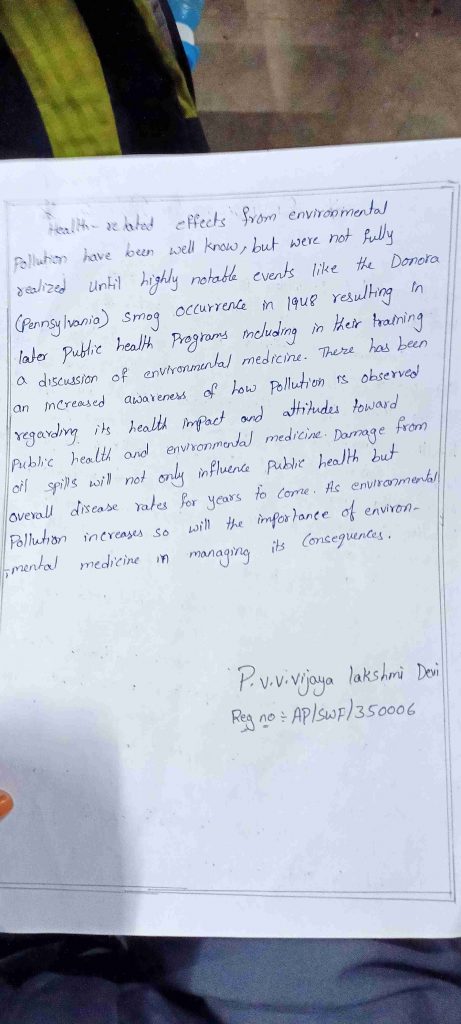 Health-related effects from environmental
Pollution have been well know, but were not fully
realized until highly notable events like the Donora
(Pennsylvania) smog occurrence in 1948 resulting in
later Public health Programs including in their training
a discussion of environmental medicine. There has been
an increased awareness of how Pollution is observed
regarding its health impact and attitudes toward
Public health and environmental medicine. Damage from
oil spills will not only influence Public health but
overall disease rates for years to come. As environmental
Pollution increases so will the importance of environ-
mental medicine in managing its Consequences.
P.V.V.Vijaya lakshmi Devi
Reg no:- AP/SWF/350006